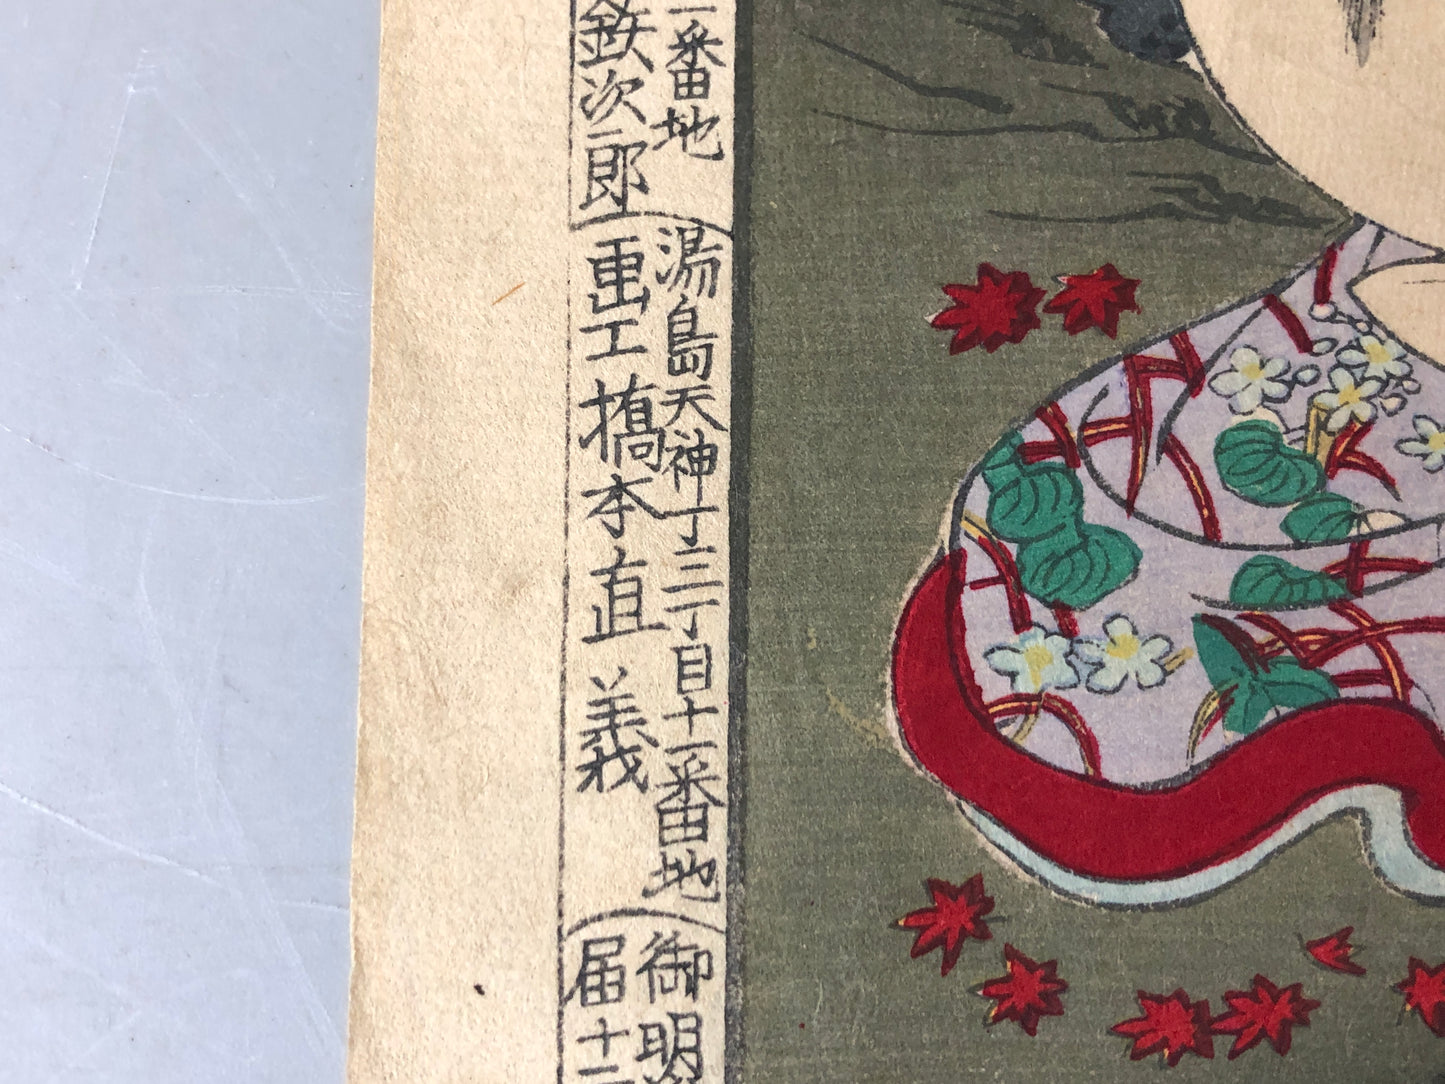 一番地
鉄次郎
湯島天神丁三丁目十一番地
画工橋本直義
御明
届十二